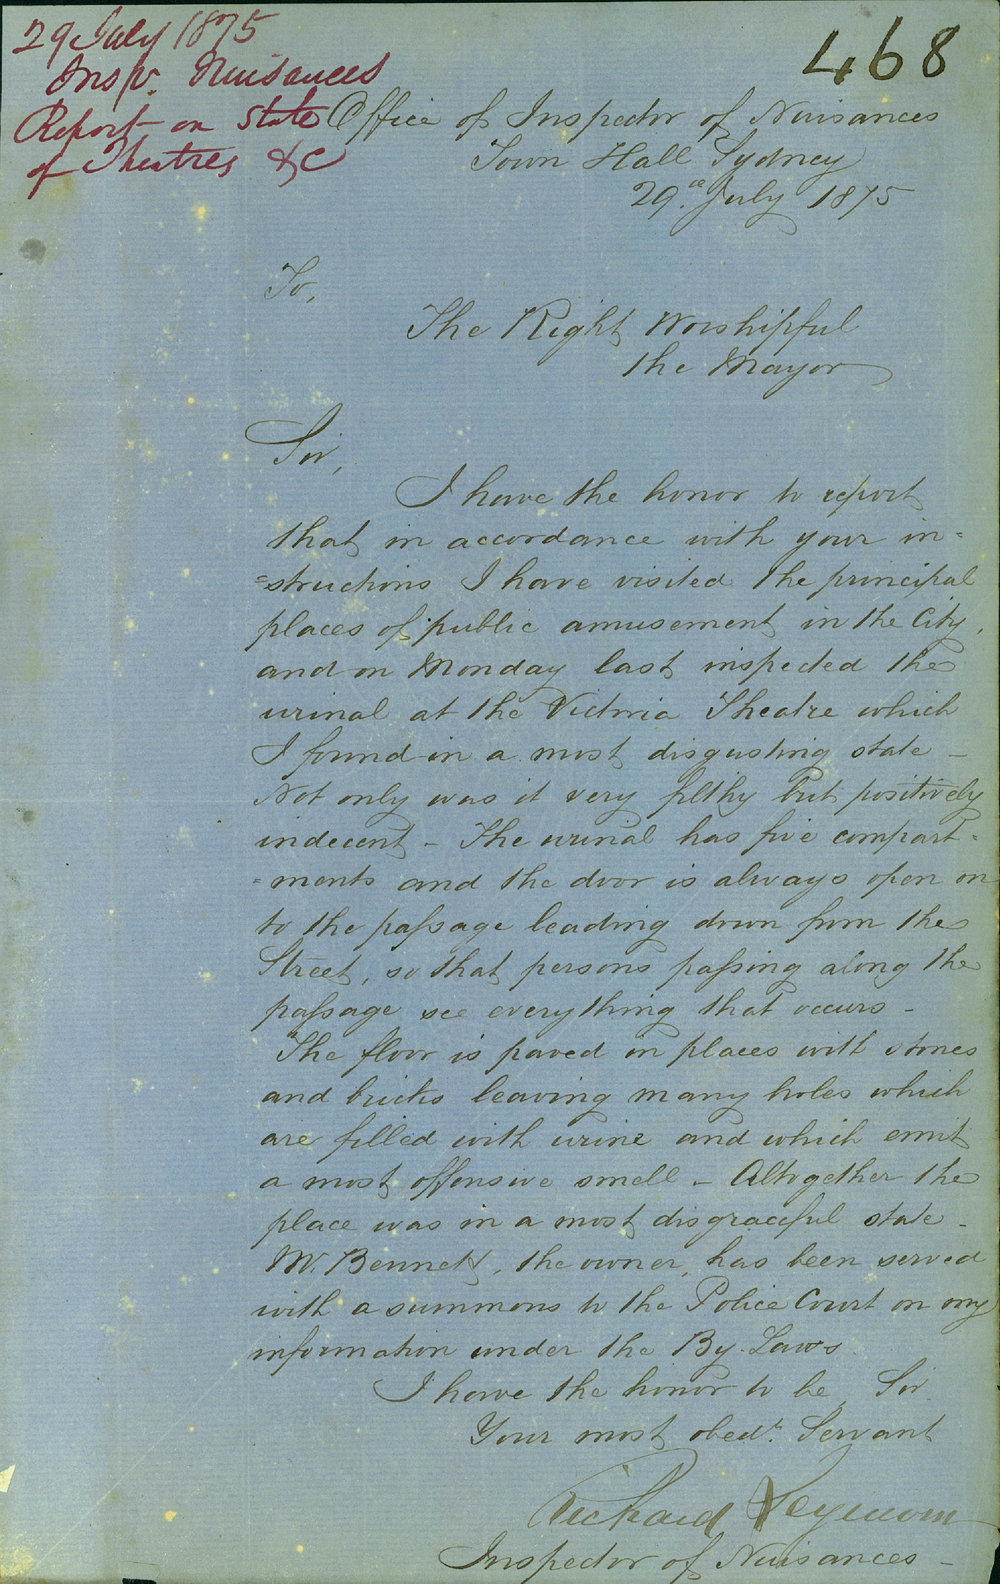 29 July 1875
Insp. Nuisances
Report on State
of Theatres &c
468
Office of Inspector of Nuisances
Town Hall Sydney
29th July 1875
To,
The Right Worshipful
the Mayor
Sir,
I have the honor to report
that in accordance with your in=
=structions I have visited the principal
places of public amusement in the City,
and on Monday last inspected the
urinal at the Victoria Theatre which
I found in a most disgusting state -
Not only was it very filthy but positively
indecent - The urinal has five compart=
=ments and the door is always open on
to the passage leading down from the
Street, so that persons passing along the
passage see everything that occurs -
The floor is paved in places with stones
and bricks leaving many holes which
are filled with urine and which emit
a most offensive smell - Altogether the
place was in a most disgraceful state -
Mr. Bennett, the owner, has been served
with a summons to the Police Court on my
information under the By-Laws
I have the honor to be, Sir
Your most obedt. Servant
Richard Seymour
Inspector of Nuisances -